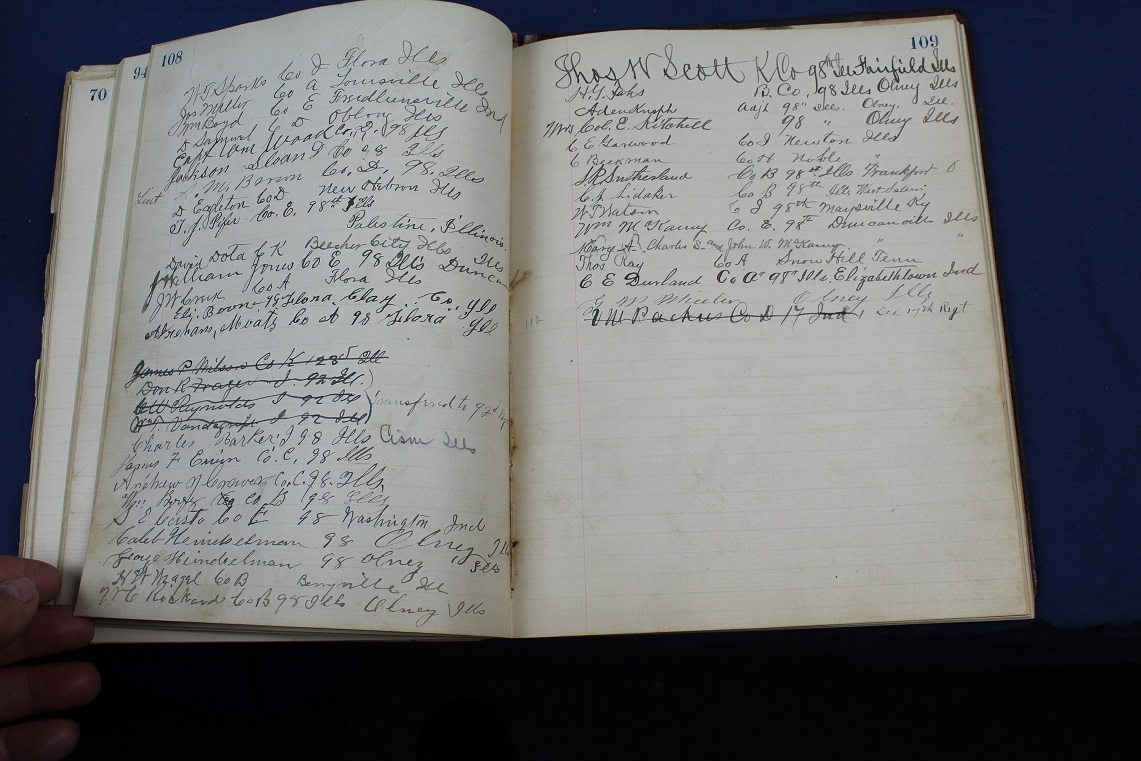 70
94
108
W T Sparks Co I Flora Ills
Jas Miller Co A Louisville Ills
Wm Boyd Co E Ind
D Samuel C D Oblong Ills
Capt Wm Wood Co. E. 98 Ills
Jackson Sloan D Co 98 Ills
Lieut S. M. Brown Co, D, 98, Ills
D Eagleton Co D New Hebron Ills
T. J. Pifer Co. E, 98th Ills
Palestine, Illinois.
David Dota C K Beecher City Ills.
William Jones Co E 98 Ills
J W Co A Flora Ills
Eli, Boone 98 Flora, Clay, Co, Ills
Abraham, Moats Co A 98 Flora Ill
James P. Wilson Co K 123d Ill
Don R Frazer I. 92 Ill.
W Reynolds I 92 Ills
I 92 Ill
transferred to 92d
Charles Barker I 98 Ills Cisne Ills
James F Co. C, 98 Ills
Andrew N Co. C. 98. Ills,
Wm Co. B 98 Ills
S E Co E 98 Washington Ind
Caleb Heinkelman 98 Olney Ills
George Heindelman 98 Olney Ills
H W Co B Berryville Ill
Co B 98 Ills Olney Ills
109
Thos W Scott K Co 98th Ill Fairfield Ills
B. Co, 98 Ills Olney Ills
Aden Knoph Adjt 98" Ills. Olney. Ill.
Mrs Col. E. Kitchell 98 " Olney Ills
C E Garwood Co I Newton Ills
C Co H Noble "
S. R. Sutherland Co B 98th Ills Frankfort O
C. J. Lidaker Co B 98th Ills West Salem
W. T. Watson C I 98th Maysville Ky
Wm McKamy Co. E. 98th Duncanville Ills
Mary A, Charles S. and John W. McKamy " "
Thos Ray Co A Snow Hill Tenn
C E Durland Co A 98th Ills. Elizabethtown Ind
G W Wheeler Olney Ills
112
Co D 17 Ind, See 17th Regt